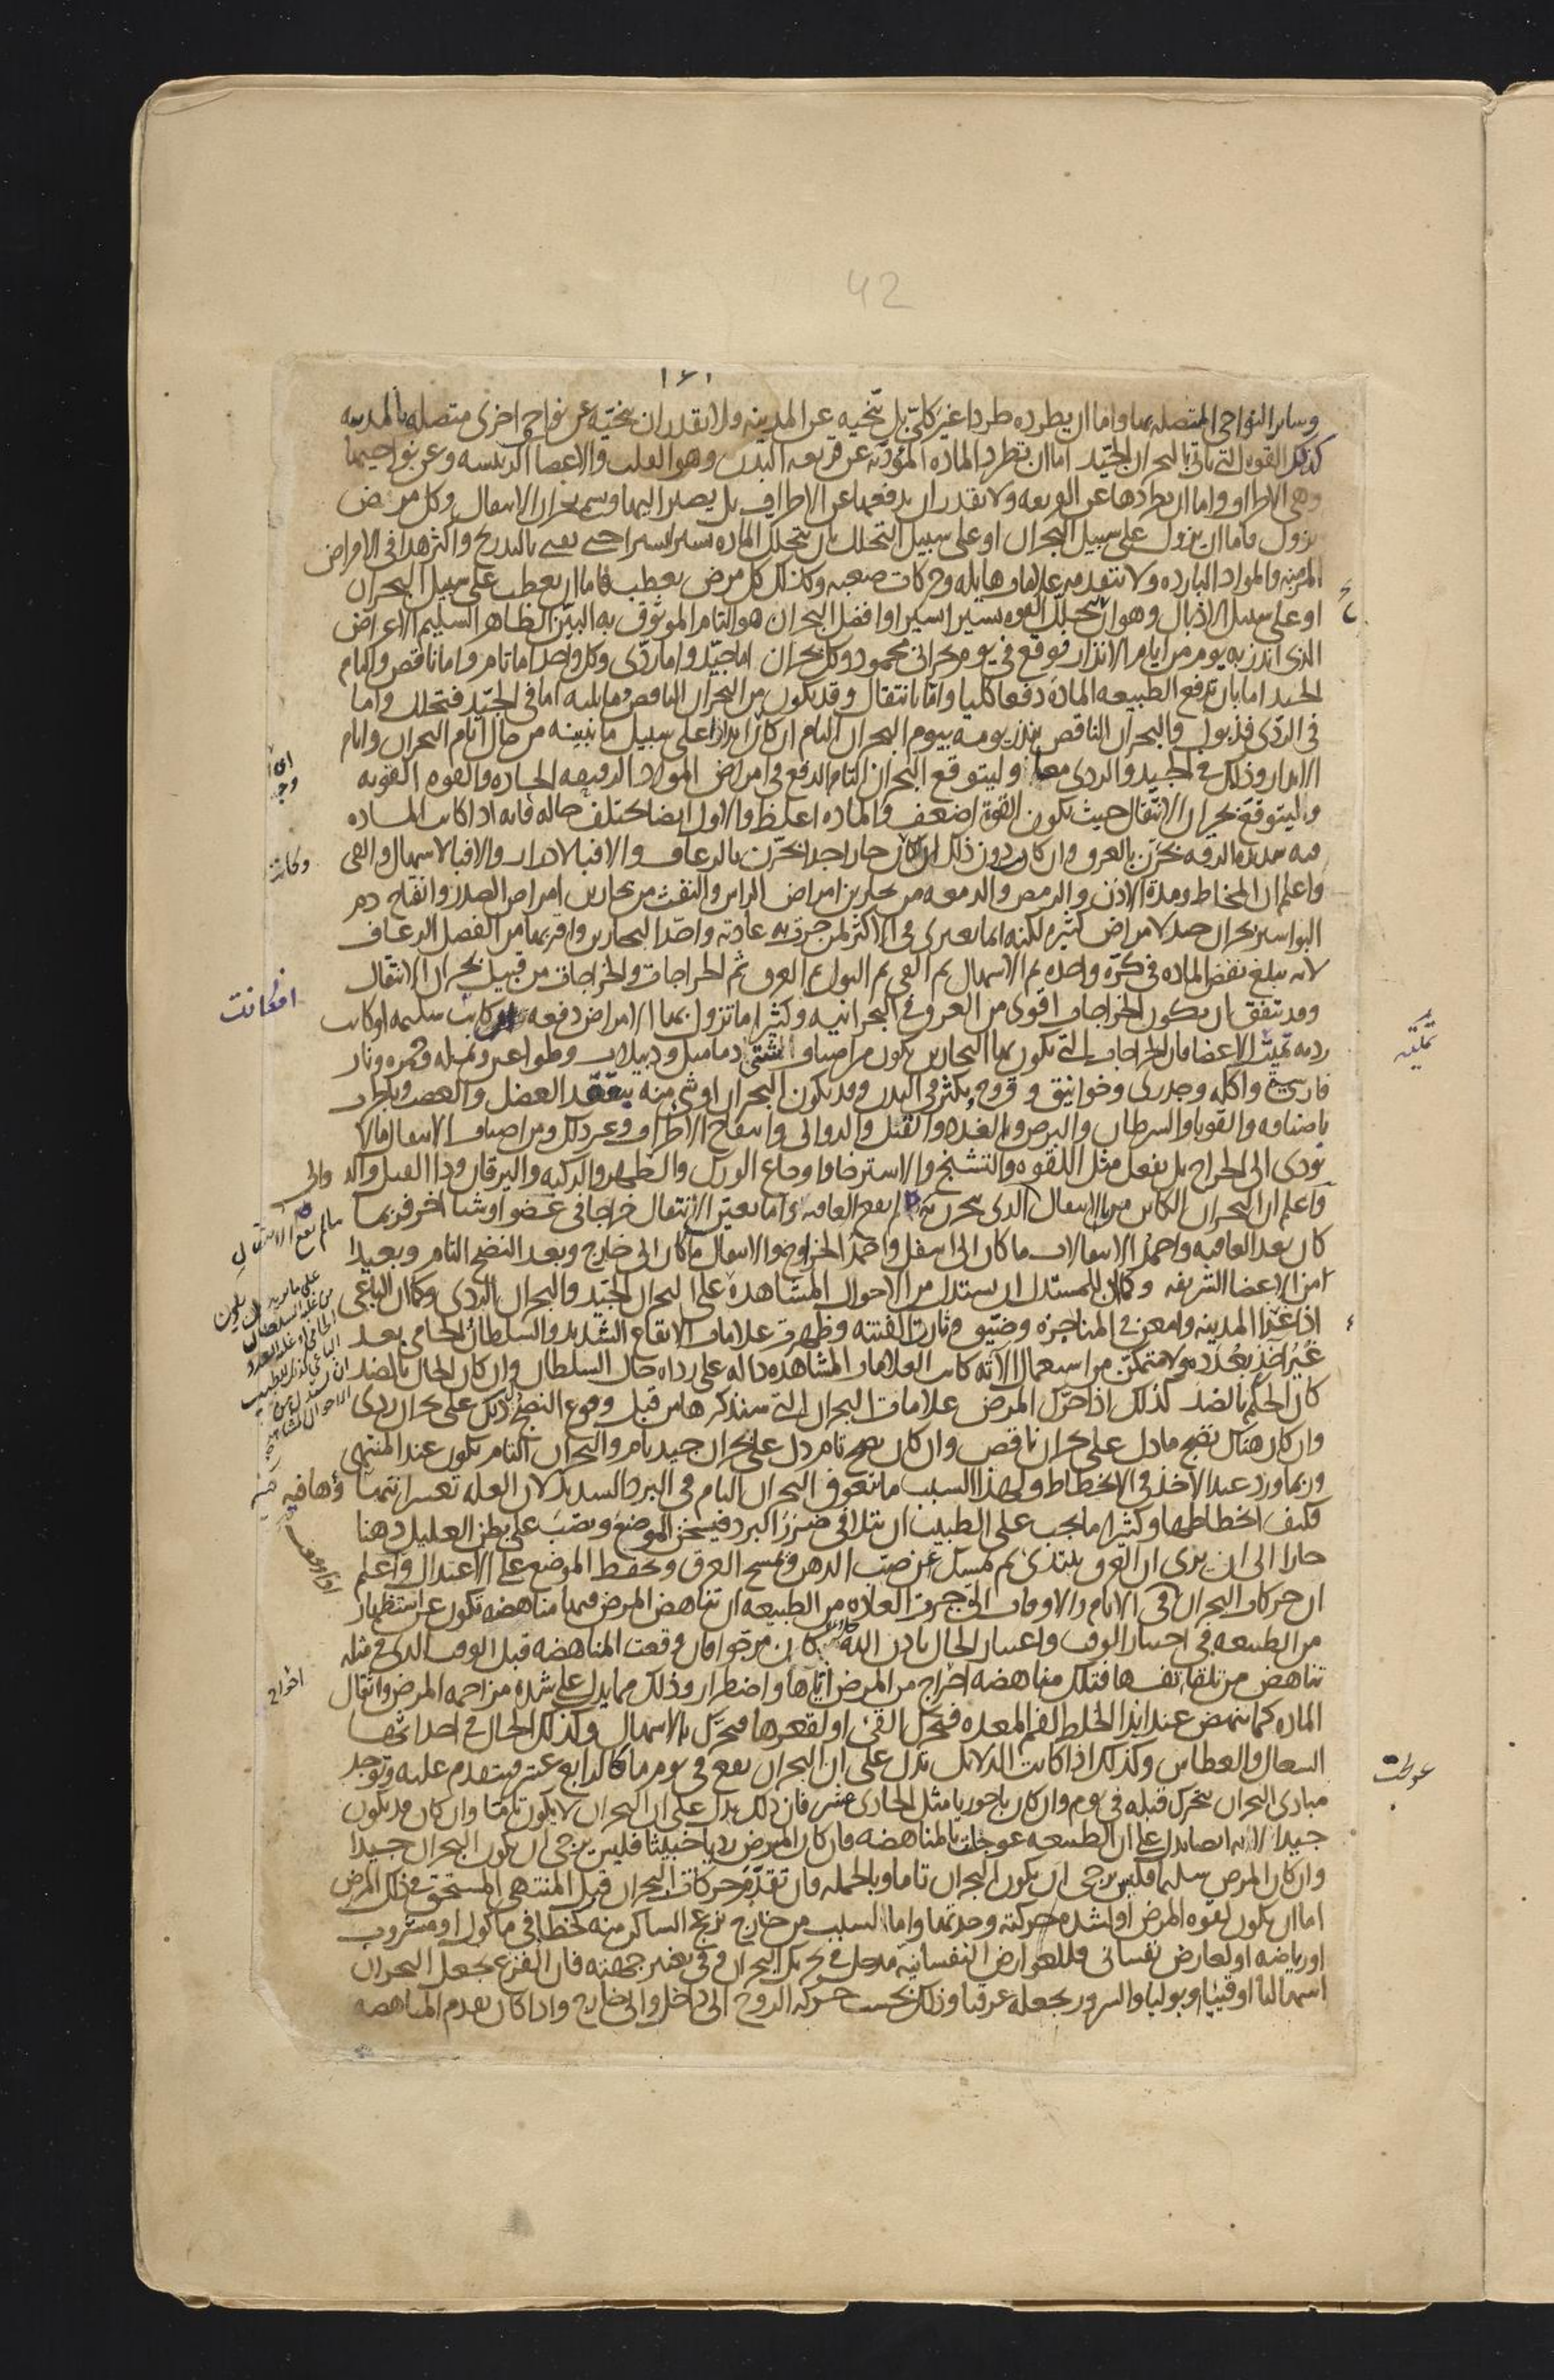 42
١٤١
وساير النواحى المتصله بها واما ان يطرده طردا غير كلى بل ينحيه عن المدينه ولا يقدر ان ينحيه عن نواحى اخرى متصله بالمدينه
كذلك القوه التى تاتى بالبحران الجيد اما ان تطرد الماده الموذيه عن قريعه البدن وهو القلب والاعضا الرييسه وعن نواحيها
وهى الاطراف واما ان يطردها عن القريعه ولا تقدر ان يدفعها عن الاطراف بل يصير اليها ويسمى بحران الانتقال وكل مرض
يزول فاما ان يزول على سبيل البحران او على سبيل التحلل بان يتحلل الماده يسيرا يسيرا حتى يفنى بالتدريج واكثر هذا فى الامراض
المزمنه والمواد البارده ولا تتقدمه علامات هايله وحركات صعبه وكذلك كل مرض يعطب فاما ان يعطب على سبيل البحران
او على سبيل الاذبال وهو ان يتحلل القوه يسيرا يسيرا وافضل البحران هو التام الموثوق به البين الظاهر السليم الاعراض
الذى انذر به يوم من ايام الانذار فوقع فى يوم بحرانى محمود وكل بحران اما جيد واما ردى وكل واحد اما تام واما ناقص والتام
الجيد اما بان تدفع الطبيعه الماده دفعا كليا واما بانتقال وقد يكون من البحران الناقص وما يليه اما فى الجيد فتحلل واما
فى الردى فذبول والبحران الناقص ينذر يومه بيوم البحران التام ان كان انذارا على سبيل ما نبينه من حال ايام البحران وايام
الانذار وذلك فى الجيد والردى معا وليتوقع البحران التام الدفع فى امراض المواد الرقيقه الحاده والقوه القويه
وليتوقع بحران الانتقال حيث تكون القوه اضعف والماده اغلظ والاول ايضا تختلف حاله فانه اذا كانت الماده
فيه شديده الرقه بحرن بالعرق وان كان دون ذلك ان كان حارا جدا بحرن بالرعاف والا فبالادرار والا فبالاسهال والقى
واعلم ان المخاط ومدة الاذن والرمص والدمعه من بحارين امراض الراس والنفث من بحارين امراض الصدر وانفتاح دم
البواسير بحران جيد لامراض كثيره لكنه انما يعترى فى الاكثر لمن جرت به عادته واحد البحارين واقربها من الفصل الرعاف
لانه يبلغ نفض الماده فى كره واحده ثم الاسهال ثم القى ثم البول ثم العرق ثم الخراجات والخراجات من قبيل بحران الانتقال
وقد يتفق ان يكون الخراجات اقوى من العروق البحرانيه وكثيرا ما تزول بها الامراض دفعه كانت سليمه او كانت
رديه تميت الاعضا فان الخراجات التى تكون بها البحارين يكون من اصناف شتى دماميل ودبيلات وطواعين ونمله وجمره ونار
فارسيه واكله وجدرى وخوانيق وقروح يكثر فى البدن وقد يكون البحران او شى منه بتعقد العضل والعصب وبالجرب
باصنافه والقوبا والسرطان والبرص وبالغدد والفتل والدوالى وانتفاخ الاطراف وغير ذلك ومن اصناف الانتقال ما لا
يودى الى الخراج بل يفعل مثل اللقوه والتشنج والاسترخا واوجاع الورك والظهر والركبه واليرقان وداالفيل والدوالى
واعلم ان البحران الكاين بالانتقال الذى بحرن به لم يقع العافيه واما يعتبر الانتقال خراجا فى عضو او شيا اخر فربما
كان بعد العافيه واحمد الانتقالات ما كان الى اسفل واحمد الخراج والانتقال ما كان الى خارج وبعد النضج التام وبعيدا
من الاعضا الشريفه وكما ان للمستدل ان يستدل من الاحوال المشاهده على البحران الجيد والبحران الردى وكما ان الباغى
اذا غزا المدينه وامعن فى المناجزه وضيق وثارت الفتنه وظهرت علامات الايقاع الشديد والسلطان الحامى بعد
غير اخذ بعدده ولا متمكن من استعمال الاته كانت العلامات المشاهده داله على رداه حال السلطان وان كان الحال بالضد
كان الحكم بالضد كذلك اذا حرك المرض علامات البحران التى سنذكرها من قبل وقوع النضج دل ذلك على بحران ردى
وان كان هناك نضج ما دل على بحران ناقص وان كان نضج تام دل على بحران جيد تام والبحران التام يكون عند المنتهى
وربما ورد عند الاخذ فى الانحطاط ولهذا السبب ما تعوق البحران التام فى البرد الشديد لان العله تعسر انتهاؤها فيه
فكيف انحطاطها وكثيرا ما يجب على الطبيب ان يتلافى ضرر البرد فيسخن الموضع ويصب على بطن العليل دهنا
حارا الى ان يرى ان العرق يبتدى ثم يمسك عن صب الدهن ويمسح العرق ويحفظ الموضع على الاعتدال واعلم
ان حركات البحران فى الايام والاوقات التى جرت العاده من الطبيعه ان تناهض المرض فيها مناهضه تكون عن استظهار
من الطبيعه فى اختيار الوقت واعتبار الحال باذن الله كان مرجوا فان وقعت المناهضه قبل الوقت الذى فى مثله
تناهض من تلقا نفسها فتلك مناهضه اخراج من المرض اياها واضطرار وذلك مما يدل على شده مزاحمه المرض واثقال
الماده كما ينهض عند ايذا الخلط لفم المعده فتحرك القى او لقعرها فتحرك بالاسهال وكذلك الحال فى احداثها
السعال والعطاس وكذلك اذا كانت الدلايل تدل على ان البحران يقع فى يوم ما كالرابع عشر فيتقدم عليه وتوجد
مبادى البحران تتحرك قبله فى يوم وان كان باحوريا مثل الحادى عشر فان ذلك يدل على ان البحران لا يكون تاما وان كان قد يكون
جيدا لانه ايضا يدل على ان الطبيعه عوجلت بالمناهضه فان كان المرض رديا خبيثا فليس يرجى ان يكون البحران جيدا
وان كان المرض سليما فليس يرجى ان يكون البحران تاما وبالجمله فان تقدم حركات البحران قبل المنتهى المستحق فى ذلك المرض
اما ان يكون لقوه المرض او لشده حركته وحدتها واما السبب من خارج يزعج الساكن منه كخطا فى ماكول او مشروب
او رياضه او لعارض نفسانى فللعوارض النفسانيه مدخل فى تحريك البحران وفى تغير جهته فان الفزع يجعل البحران
اسهاليا او قييا او بوليا والسرور يجعله عرقيا وذلك بحسب حركه الروح الى داخل والى خارج واذا كان تقدم المناهضه
وكانت
عوجلت